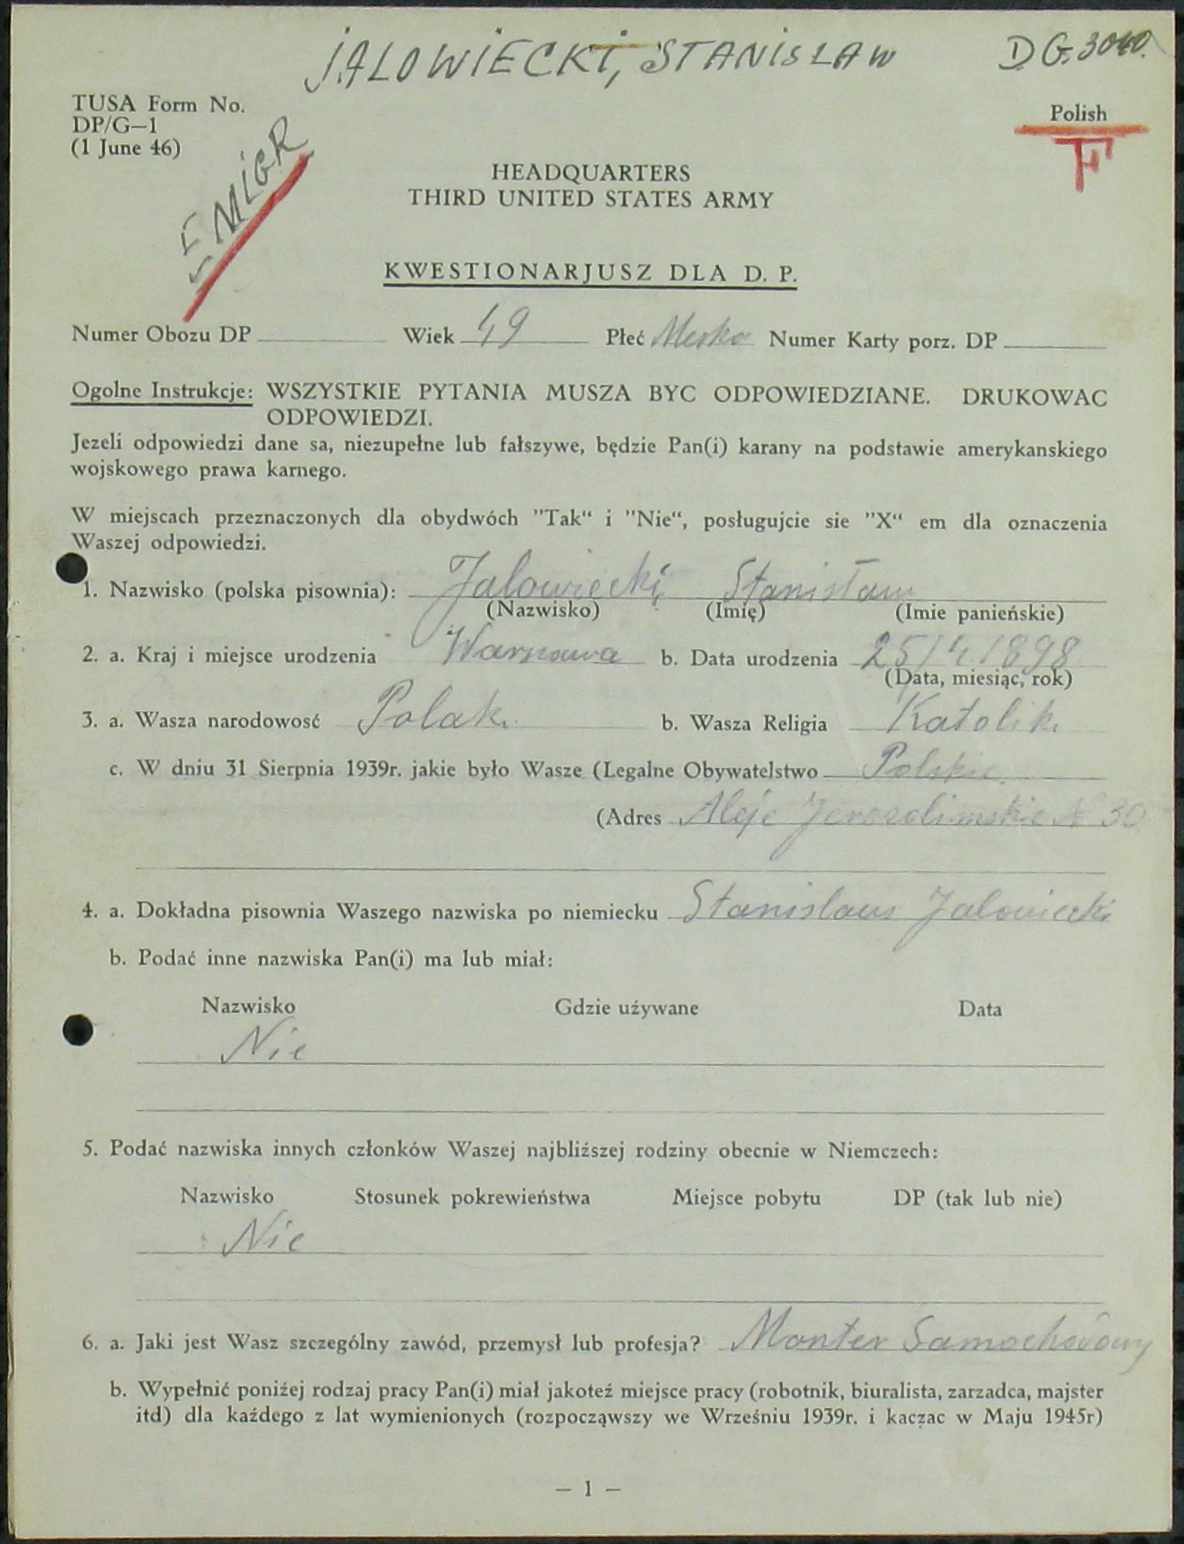 JALOWIECKI, STANISLAW D.G. 3040.
TUSA Form No.
DP/G—1
(1 June 46)
EMIGR
Polish
F
HEADQUARTERS
THIRD UNITED STATES ARMY
KWESTIONARJUSZ DLA D. P.
Numer Obozu DP Wiek 49 Płeć Męska Numer Karty porz. DP
Ogolne Instrukcje: WSZYSTKIE PYTANIA MUSZA BYC ODPOWIEDZIANE. DRUKOWAC
ODPOWIEDZI.
Jezeli odpowiedzi dane sa, niezupełne lub fałszywe, będzie Pan(i) karany na podstawie amerykanskiego
wojskowego prawa karnego.
W miejscach przeznaczonych dla obydwóch "Tak“ i "Nie“, posługujcie sie "X“ em dla oznaczenia
Waszej odpowiedzi.
1. Nazwisko (polska pisownia): Jalowiecki Stanisław
(Nazwisko) (Imię) (Imie panieńskie)
2. a. Kraj i miejsce urodzenia Warszawa b. Data urodzenia 25/4/898
(Data, miesiąc, rok)
3. a. Wasza narodowosć Polak b. Wasza Religia Katolik
c. W dniu 31 Sierpnia 1939r. jakie było Wasze (Legalne Obywatelstwo Polskie
(Adres Aleje Jerozolimskie N 30
4. a. Dokładna pisownia Waszego nazwiska po niemiecku Stanislaus Jalowiecki
b. Podać inne nazwiska Pan(i) ma lub miał:
Nazwisko Gdzie używane Data
Nie
5. Podać nazwiska innych członków Waszej najbliższej rodziny obecnie w Niemczech:
Nazwisko Stosunek pokrewieństwa Miejsce pobytu DP (tak lub nie)
Nie
6. a. Jaki jest Wasz szczególny zawód, przemysł lub profesja? Monter Samochodowy
b. Wypełnić poniżej rodzaj pracy Pan(i) miał jakoteż miejsce pracy (robotnik, biuralista, zarzadca, majster
itd) dla każdego z lat wymienionych (rozpocząwszy we Wrześniu 1939r. i kaczac w Maju 1945r)
— 1 —